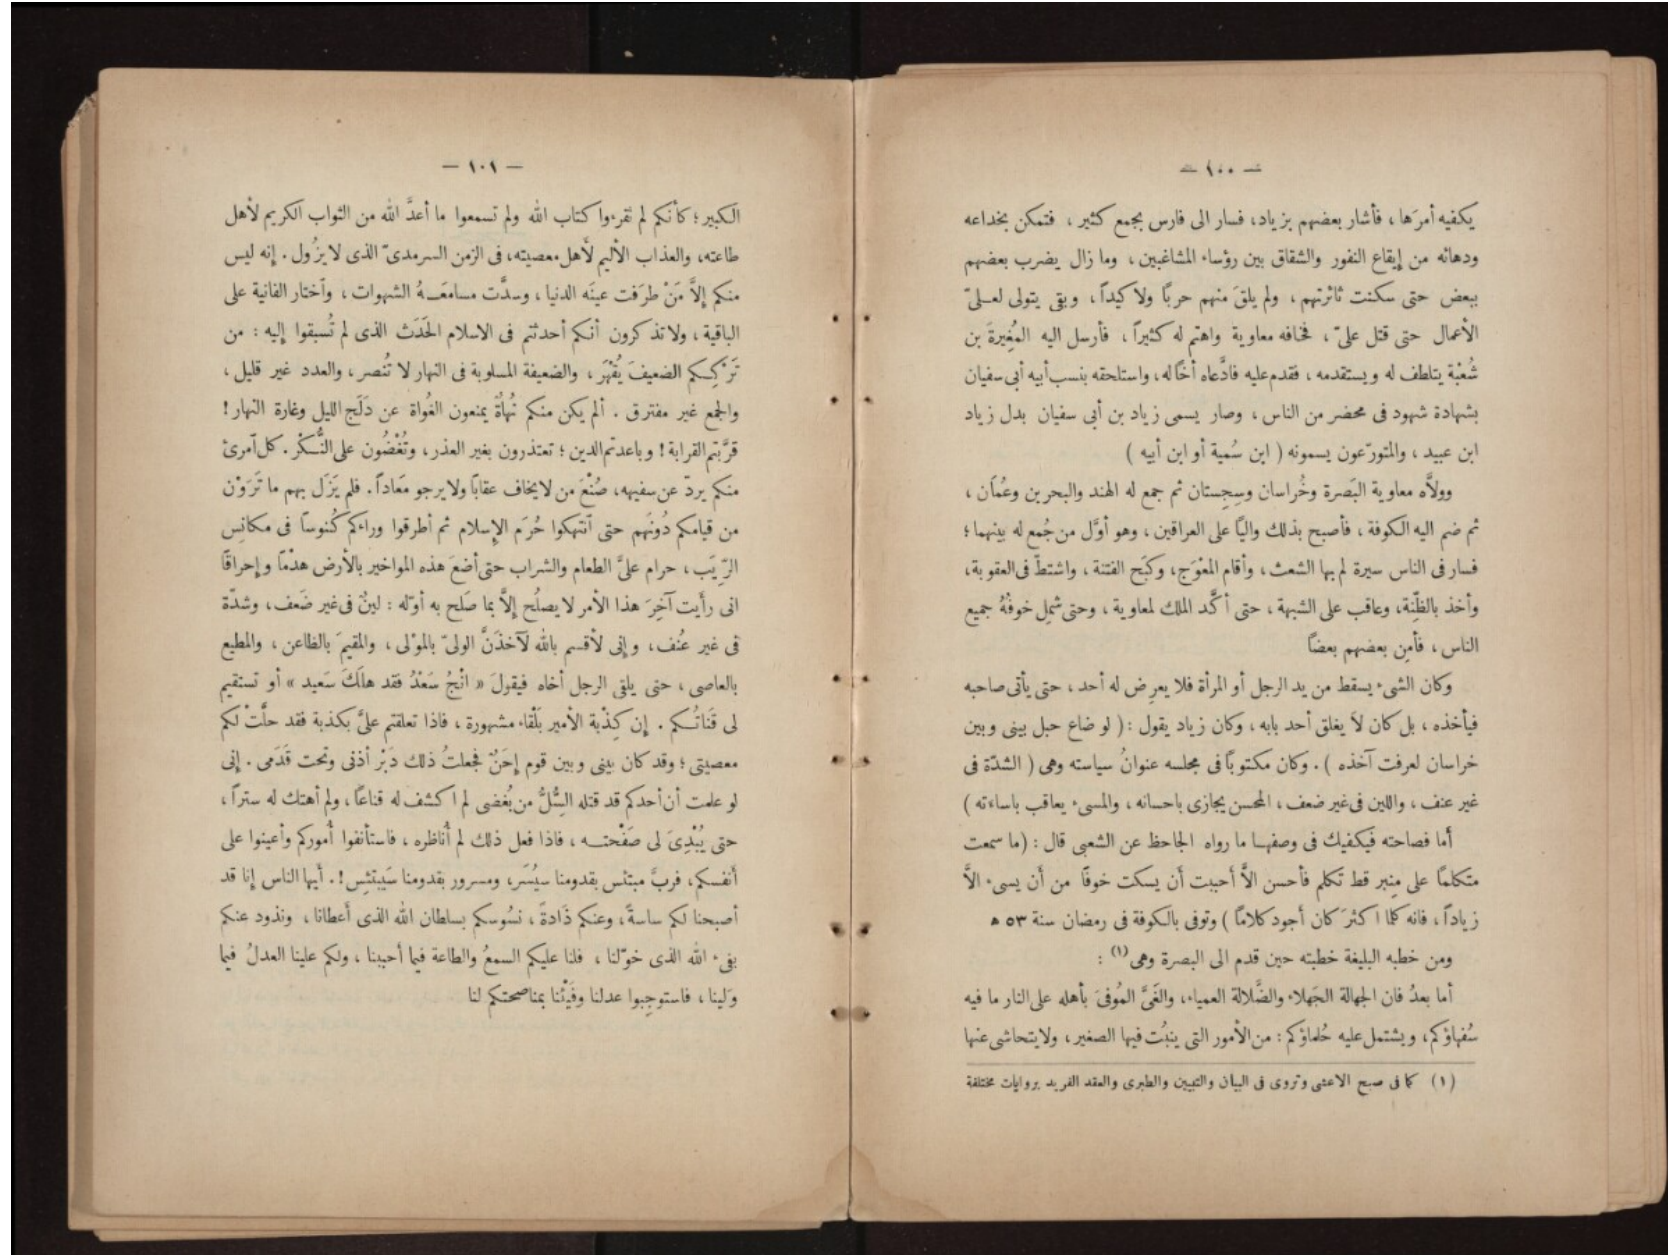 — ١٠٠ —
يكفيه أمرَها ، فأشار بعضهم بزياد، فسار الى فارس بجمع كثير ، فتمكن بخداعه
ودهائه من إيقاع النفور والشقاق بين رؤساء المشاغبين ، وما زال يضرب بعضهم
ببعض حتى سكنت ثائرتهم ، ولم يلقَ منهم حربًا ولا كيداً ، وبقى يتولى لعلىّ
الأعمال حتى قتل علىّ ، فخافه معاوية واهتم له كثيراً ، فأرسل اليه المُغِيرةَ بن
شُعْبة يتلطف له ويستقدمه ، فقدم عليه فادَّعاه أخًا له، واستلحقه بنسب أبيه أبى سفيان
بشهادة شهود فى محضر من الناس ، وصار يسمى زياد بن أبى سفيان بدل زياد
ابن عبيد ، والمتورّعون يسمونه ( ابن سُمية أو ابن أبيه )
وولاَّه معاوية البَصرة وخُراسان وسِجِستان ثم جمع له الهند والبحرين وعُمَان ،
ثم ضم اليه الكوفة ، فأصبح بذلك واليًا على العراقين ، وهو أوَّل من جُمع له بينهما ؛
فسار فى الناس سيرة لم بها الشعث ، وأقام المعْوَج، وكَبَح الفتنة ، واشتطّ فى العقوبة،
وأخذ بالظِّنة، وعاقب على الشبهة ، حتى أكَّد الملك لمعاوية ، وحتى شمِل خوفُهُ جميع
الناس ، فأمِن بعضهم بعضًا
وكان الشىء يسقط من يد الرجل أو المرأة فلا يعرِض له أحد ، حتى يأتى صاحبه
فيأخذه ، بل كان لاَ يغلق أحد بابه ، وكان زياد يقول : ( لو ضاع حبل بينى وبين
خراسان لعرفت آخذه ) . وكان مكتوبًا فى مجلسه عنوانُ سياسته وهى ( الشدّة فى
غير عنف ، واللين فى غير ضعف ، المحسن يجازى باحسانه ، والمسىء يعاقب باساءته )
أما فصاحته فيكفيك فى وصفها ما رواه الجاحظ عن الشعبى قال : (ما سمعت
متكلمًا على مِنبر قط تكلم فأحسن الاَّ أحببت أن يسكت خوفًا من أن يسىء الاَّ
زياداً ، فانه كلما اكثرَ كان أجود كلامًا ) وتوفى بالكوفة فى رمضان سنة ٥٣ ه
ومن خطبه البليغة خطبته حين قدم الى البصرة وهى (١) :
أما بعدُ فان الجهالة الجَهلاء والضَّلالة العمياء، والغَىَّ المُوفىَ بأهله على النار ما فيه
سُفهاؤكم، ويشتمل عليه حُلماؤكم : من الأمور التى ينبُت فيها الصغير ، ولا يتحاشى عنها
(١) كما فى صبح الاعشى وتروى فى البيان والتبيين والطبرى والعقد الفريد بروايات مختلفة
— ١٠١ —
الكبير ؛ كأنكم لم تقرءوا كتاب الله ولم تسمعوا ما أعدَّ الله من الثواب الكريم لأهل
طاعته، والعذاب الأليم لأهل معصيته، فى الزمن السرمدىّ الذى لا يزُول . إنه ليس
منكم إلاَّ مَنْ طرَفت عينَه الدنيا ، وسدَّت مسامعَهُ الشهوات ، وآختار الفانية على
الباقية ، ولا تذكرون أنكم أحدثتم فى الاسلام الحَدَث الذى لم تُسبقوا إليه : من
تَرْكِكم الضعيفَ يُقْهَر ، والضعيفة المسلوبة فى النهار لا تُنصر ، والعدد غير قليل ،
والجمع غير مفترق . ألم يكن منكم نُهاةٌ يمنعون الغُواة عن دَلَج الليل وغارة النهار !
قرَّبتم القرابة ! وباعدتم الدين ؛ تعتذرون بغير العذر ، وتُغْضُون على النُّكْر . كل آمرئ
منكم يردّ عن سفيهه، صُنْعَ من لا يخاف عقابًا ولا يرجو مَعاداً . فلم يَزَل بهم ما تَرَوْن
من قيامكم دُونَهم حتى آنتهكوا حُرَم الإسلام ثم أطرقوا وراءكم كُنوسًا فى مكانِس
الرِّيَب ، حرام علىَّ الطعام والشراب حتى أضعَ هذه المواخير بالأرض هدْمًا وإحراقًا
انى رأيت آخِرَ هذا الأمر لا يصلُح إلاَّ بما صَلح به أوّله : لينٌ فى غير ضَعف، وشدّة
فى غير عُنف، وإنى لأقسم بالله لآخذَنَّ الولىّ بالموْلى ، والمقيمَ بالظاعن ، والمطيع
بالعاصى ، حتى يلقى الرجل أخاه فيقولَ « انْجُ سَعْدُ فقد هلَكَ سَعيد » أو تستقيم
لى قَناتُكم . إن كِذْبة الأمير بَلْقاء مشهورة ، فاذا تعلقتم علىَّ بكذبة فقد حلَّتْ لكم
معصيتى ؛ وقد كان بينى وبين قوم إحَنٌ فجعلتُ ذلك دَبْرَ أذنى وتحت قَدَمى . إنى
لو علمت أن أحدكم قد قتله السِّلُّ من بُغضى لم اكشف له قناعًا، ولم أهتك له ستراً ،
حتى يُبْدِىَ لى صَفْحته ، فاذا فعل ذلك لم أُناظره ، فاستأنفوا أُموركم وأعينوا على
أنفسكم، فربَّ مبتئس بقدومنا سيُسَر، ومسرور بقدومنا سَيبتئِس !. أيها الناس إنا قد
أصبحنا لكم ساسةً، وعنكم ذَادةً ، نسُوسكم بسلطان الله الذى أعطانا ، ونذود عنكم
بفىء الله الذى خوّلنا ، فلنا عليكم السمعُ والطاعة فيما أحببنا ، ولكم علينا العدلُ فيما
وَلينا ، فاستوجِبوا عدلنا وفَيْئَنا بمناصحتكم لنا